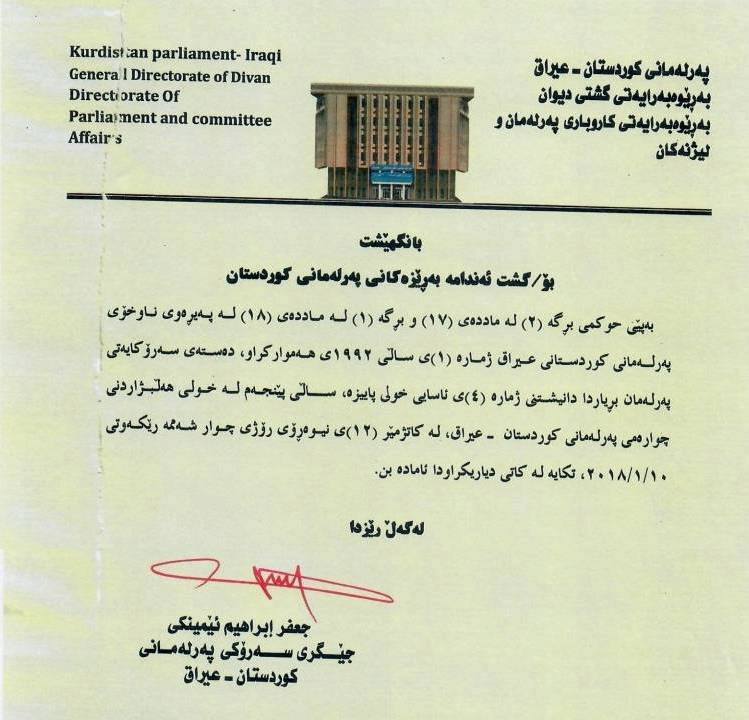 Kurdistan parliament- Iraqi
General Directorate of Divan
Directorate Of
Parliament and committee
Affairs
پەرلەمانی کوردستان - عیراق
بەڕێوەبەرایەتی گشتی دیوان
بەڕێوەبەرایەتی کاروباری پەرلەمان و
لیژنەکان
بانگهێشت
بۆ/گشت ئەندامە بەڕێزەکانی پەرلەمانی کوردستان
بەپێی حوکمی بڕگە (٢) لە ماددەی (١٧) و بڕگە (١) لە ماددەی (١٨) لە پەیڕەوی ناوخۆی
پەرلەمانی کوردستانی عیراق ژمارە (١)ی ساڵی ١٩٩٢ی هەموارکراو، دەستەی سەرۆکایەتی
پەرلەمان بڕیاردا دانیشتنی ژمارە (٤)ی ئاسایی خولی پاییزە، ساڵی پێنجەم لە خولی هەڵبژاردنی
چوارەمی پەرلەمانی کوردستان - عیراق، لە کاتژمێر (١٢)ی نیوەڕۆی رۆژی چوار شەممە رێکەوتی
٢٠١٨/١/١٠، تکایە لە کاتی دیاریکراودا ئامادە بن.
لەگەڵ رێزدا
جعفر إبراهیم ئێمینکی
جێگری سەرۆکی پەرلەمانی
کوردستان - عیراق